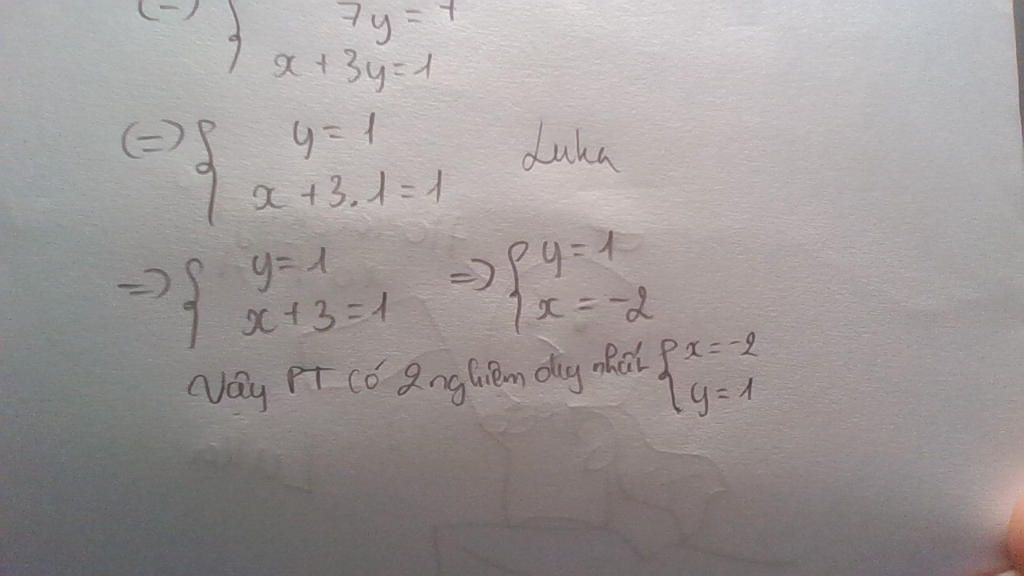 (=) { 7y = 7
x + 3y = 1
(=) { y = 1
x + 3.1 = 1
Luka
=> { y = 1
x + 3 = 1
=> { y = 1
x = -2
Vây PT có 2 nghiêm duy nhất { x = -2
y = 1